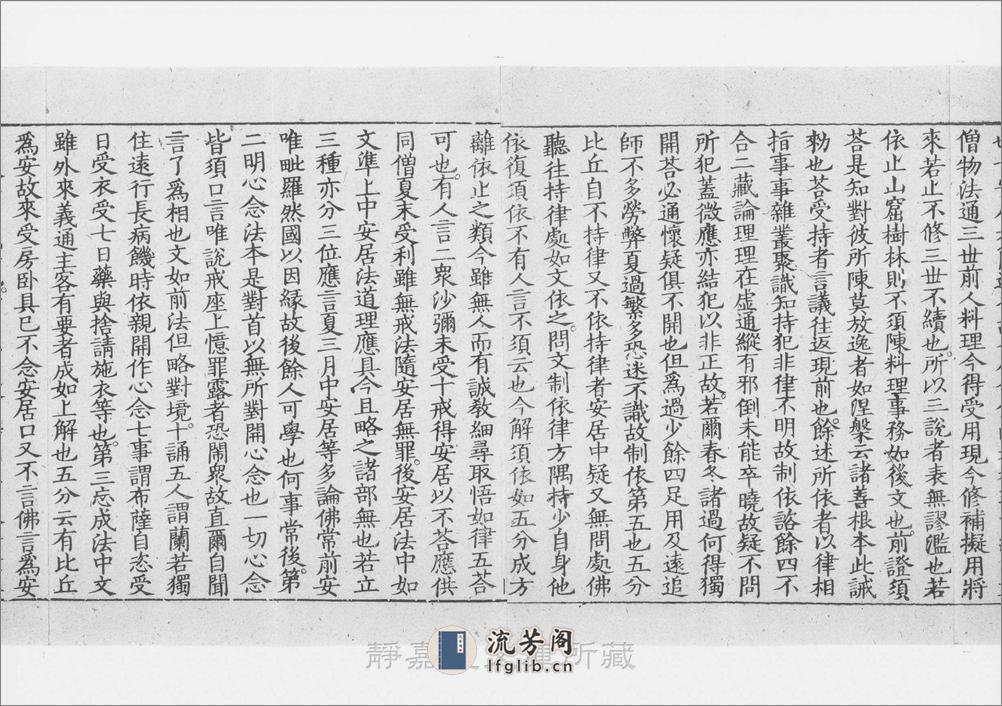 僧物法通三世前人料理今得受用現今修補擬用將
來若止不修三世不續也所以三說者表無謬濫也若
依止山窟樹林則不須陳料理事務如後文也前證須
荅是知對彼所陳莫放逸者如涅槃云諸善根本此誡
勑也荅受持者言議往返現前也餘述所依者以律相
指事事雜叢聚識知持犯非律不明故制依諮餘四不
合二藏論理理在虛通縱有邪倒未能卒曉故疑不問
所犯蓋微應亦結犯以非正故若爾春冬諸過何得獨
開荅必通懷疑俱不開也但爲過少餘四足用及遠追
師不多勞弊夏過繁多恐迷不識故制依第五也五分
比丘自不持律又不依持律者安居中疑又無問處佛
聽往持律處如文依之問文制依律方隅持少自身他
依復須依不有人言不須云也今解須依如五分成方
離依止之類今雖無人而有誠敎細尋取悟如律五荅
可也有人言二衆沙彌未受十戒得安居以不荅應供
同僧夏末受利雖無戒法隨安居無罪後安居法中如
文準上中安居法道理應具今且略之諸部無也若立
三種亦分三位應言夏三月中安居等多論佛常前安
唯毗羅然國以因緣故後餘人可學也何事常後第
二明心念法本是對首以無所對開心念也一切心念
皆須口言唯說戒座上憶罪露者恐鬧衆故直爾自聞
言了爲相也文如前法但略對境十誦五人謂蘭若獨
住遠行長病饑時依親開作心念七事謂布薩自恣受
日受衣受七日藥與捨請施衣等也第三忘成法中文
雖外來義通主客有要者成如上解也五分云有比丘
爲安故來受房卧具已不念安居口又不言佛言爲安
静嘉
所藏
流芳阁
lfglib.cn